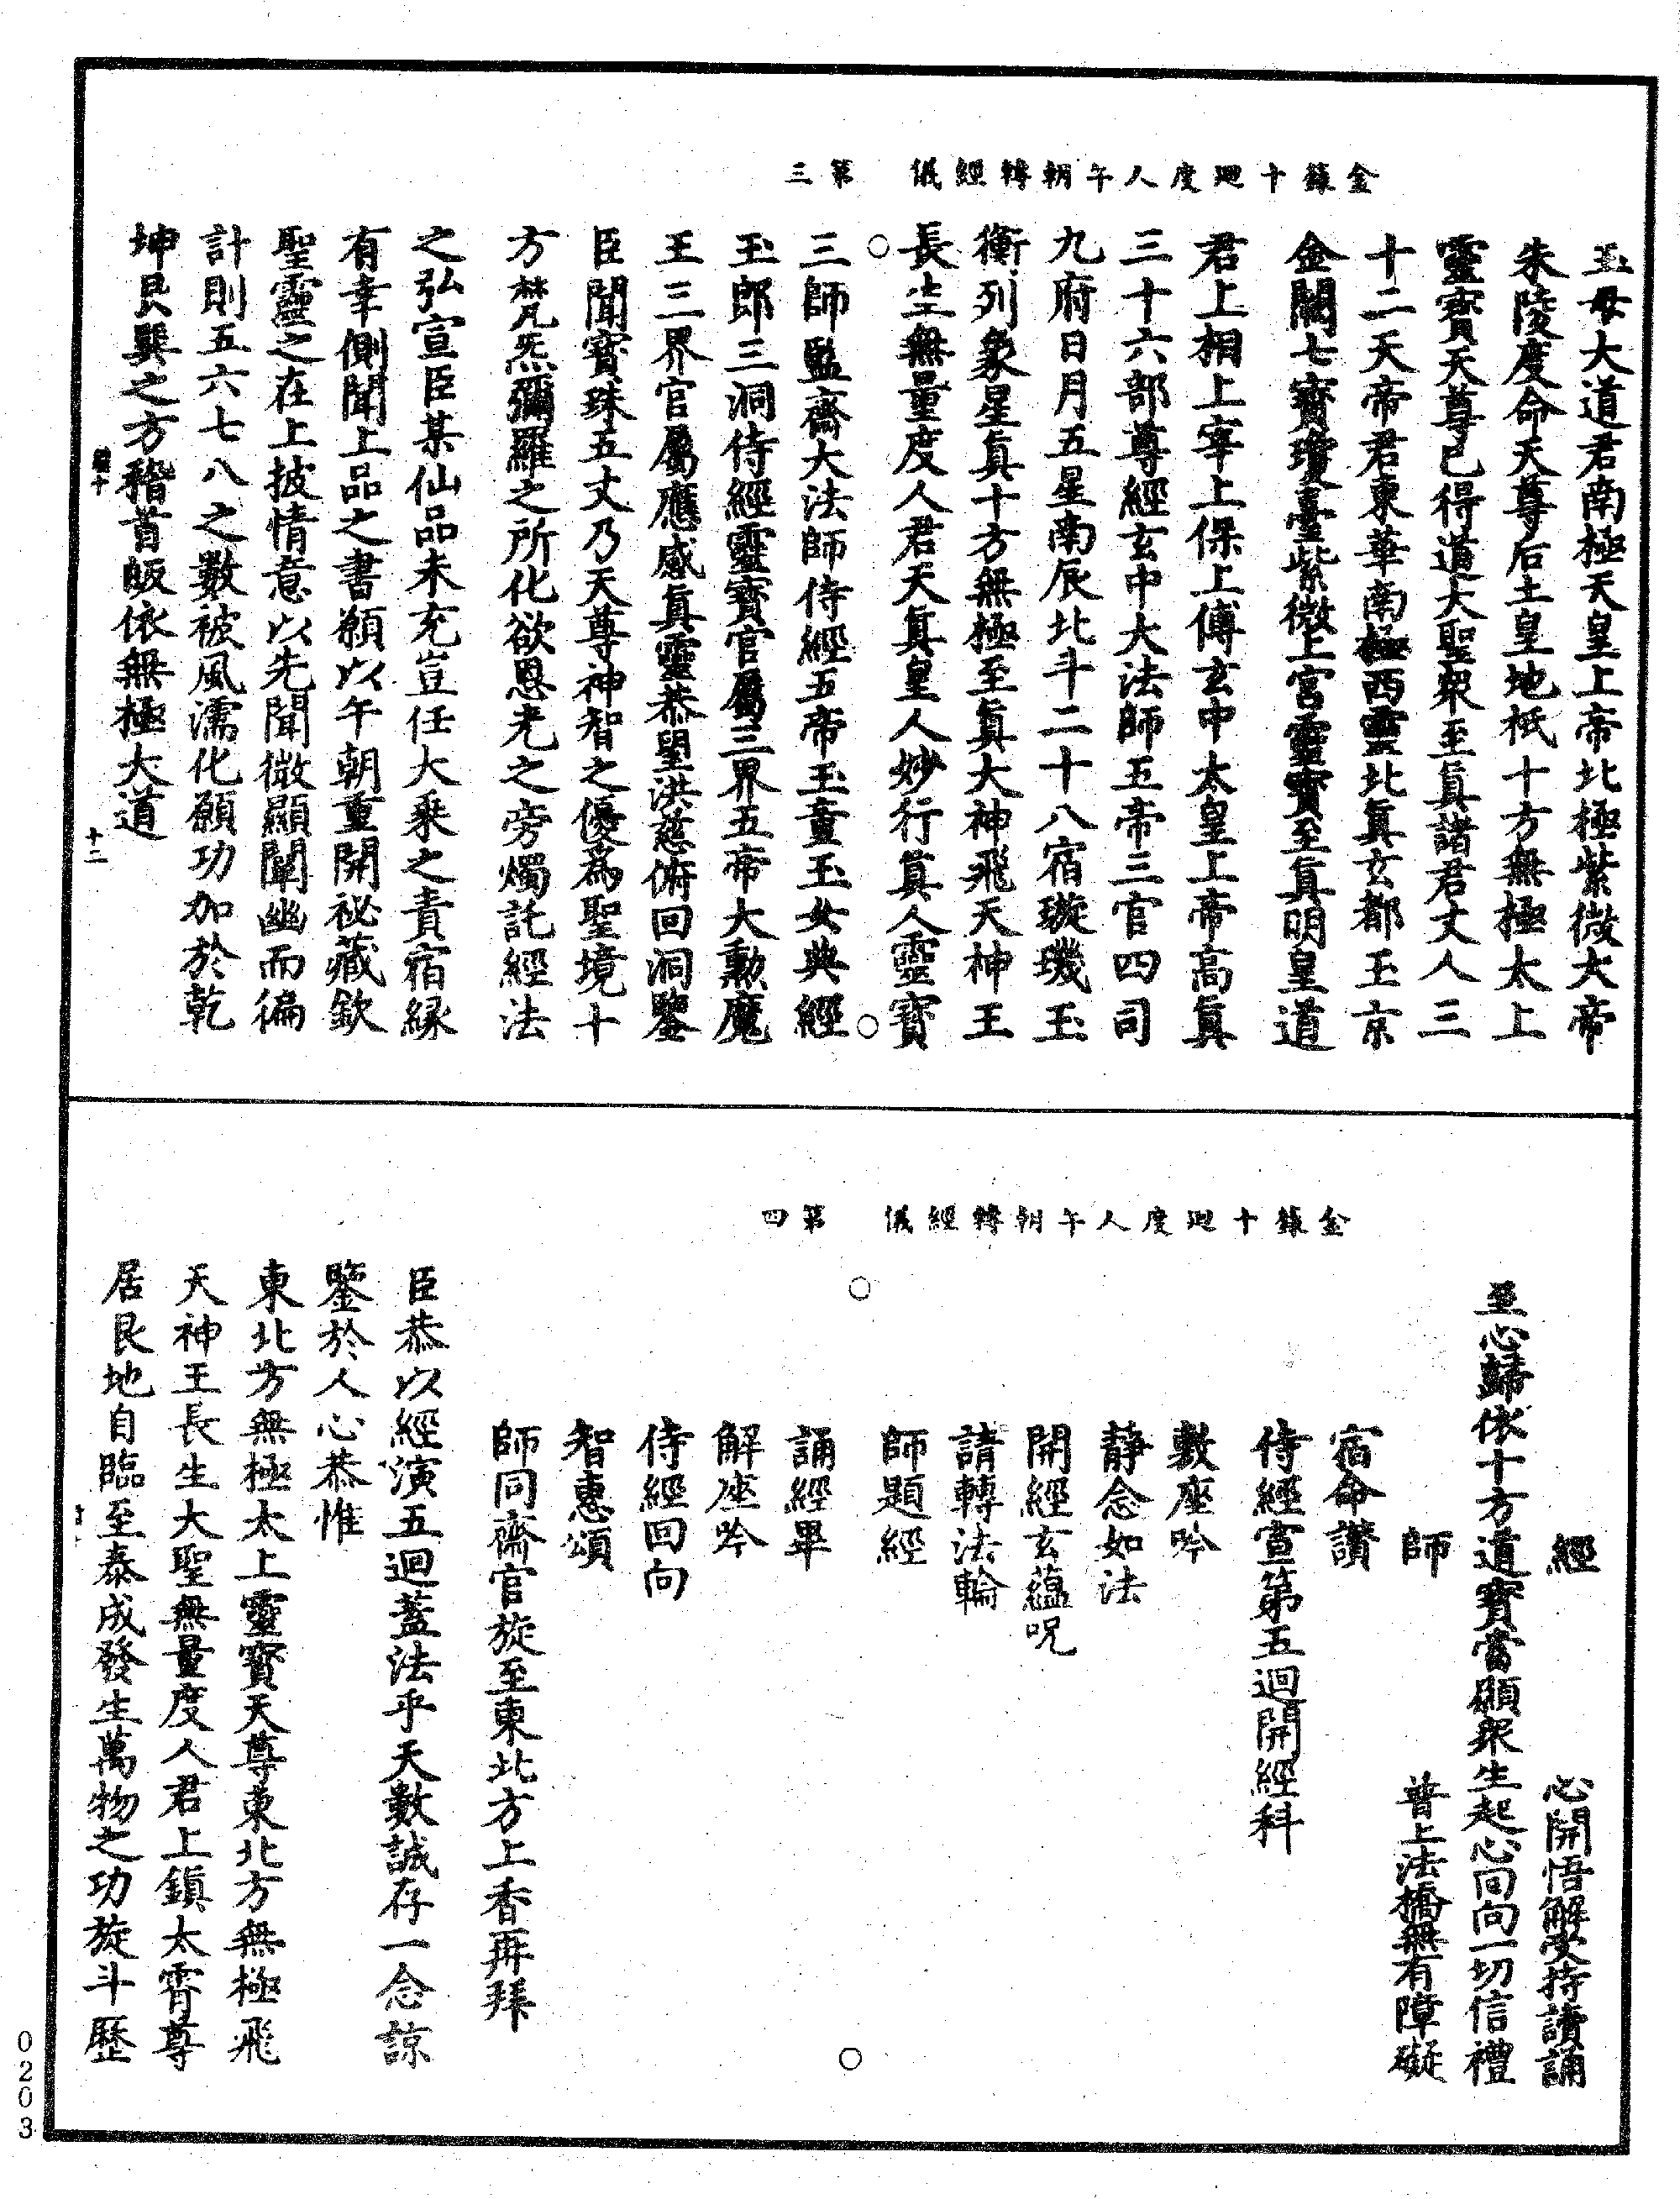 金籙十廻度人午朝轉經儀　第三
玉母大道君南極天皇上帝北極紫微大帝
朱陵度命天尊后土皇地祇十方無極太上
靈寶天尊已得道大聖衆至眞諸君丈人三
十二天帝君東華南極西靈北眞玄都玉京
金闕七寶瓊臺紫微上宮靈寶至眞明皇道
君上相上宰上保上傅玄中太皇上帝高眞
三十六部尊經玄中大法師五帝三官四司
九府日月五星南辰北斗二十八宿璇璣玉
衡列象星眞十方無極至眞大神飛天神王
長生無量度人君天眞皇人妙行眞人靈寶
三師監齋大法師侍經五帝玉童玉女典經
玉郎三洞侍經靈寶官屬三界五帝大勳魔
王三界官屬應感眞靈恭望洪慈俯回洞鑒
臣聞寶珠五丈乃天尊神智之優爲聖境十
方梵炁彌羅之所化欲恩光之旁燭託經法
之弘宣臣某仙品未充豈任大乘之責宿縁
有幸側聞上品之書願以午朝重開祕藏欽
聖靈之在上披情意以先聞微顯闡幽而徧
計則五六七八之數被風濡化願功加於乾
坤艮巽之方稽首皈依無極大道
十二
金籙十廻度人午朝轉經儀　第四
經　心開悟解受持讀誦
至心歸依十方道寶當願衆生起心回向一切信禮
師　普上法橋無有障礙
宿命讚
侍經宣第五迴開經科
敷座吟
靜念如法
開經玄蘊呪
請轉法輪
師題經
誦經畢
解座吟
侍經回向
智惠頌
師同齋官旋至東北方上香再拜
臣恭以經演五迴蓋法乎天數誠存一念諒
鑒於人心恭惟
東北方無極太上靈寶天尊東北方無極飛
天神王長生大聖無量度人君上鎮太霄尊
居艮地自臨至泰成發生萬物之功旋斗歷
0203